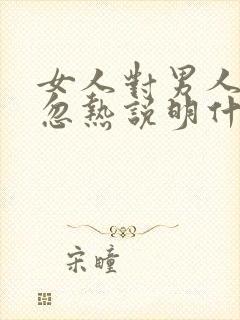 女人對男人
忽熱說明什
宋瞳